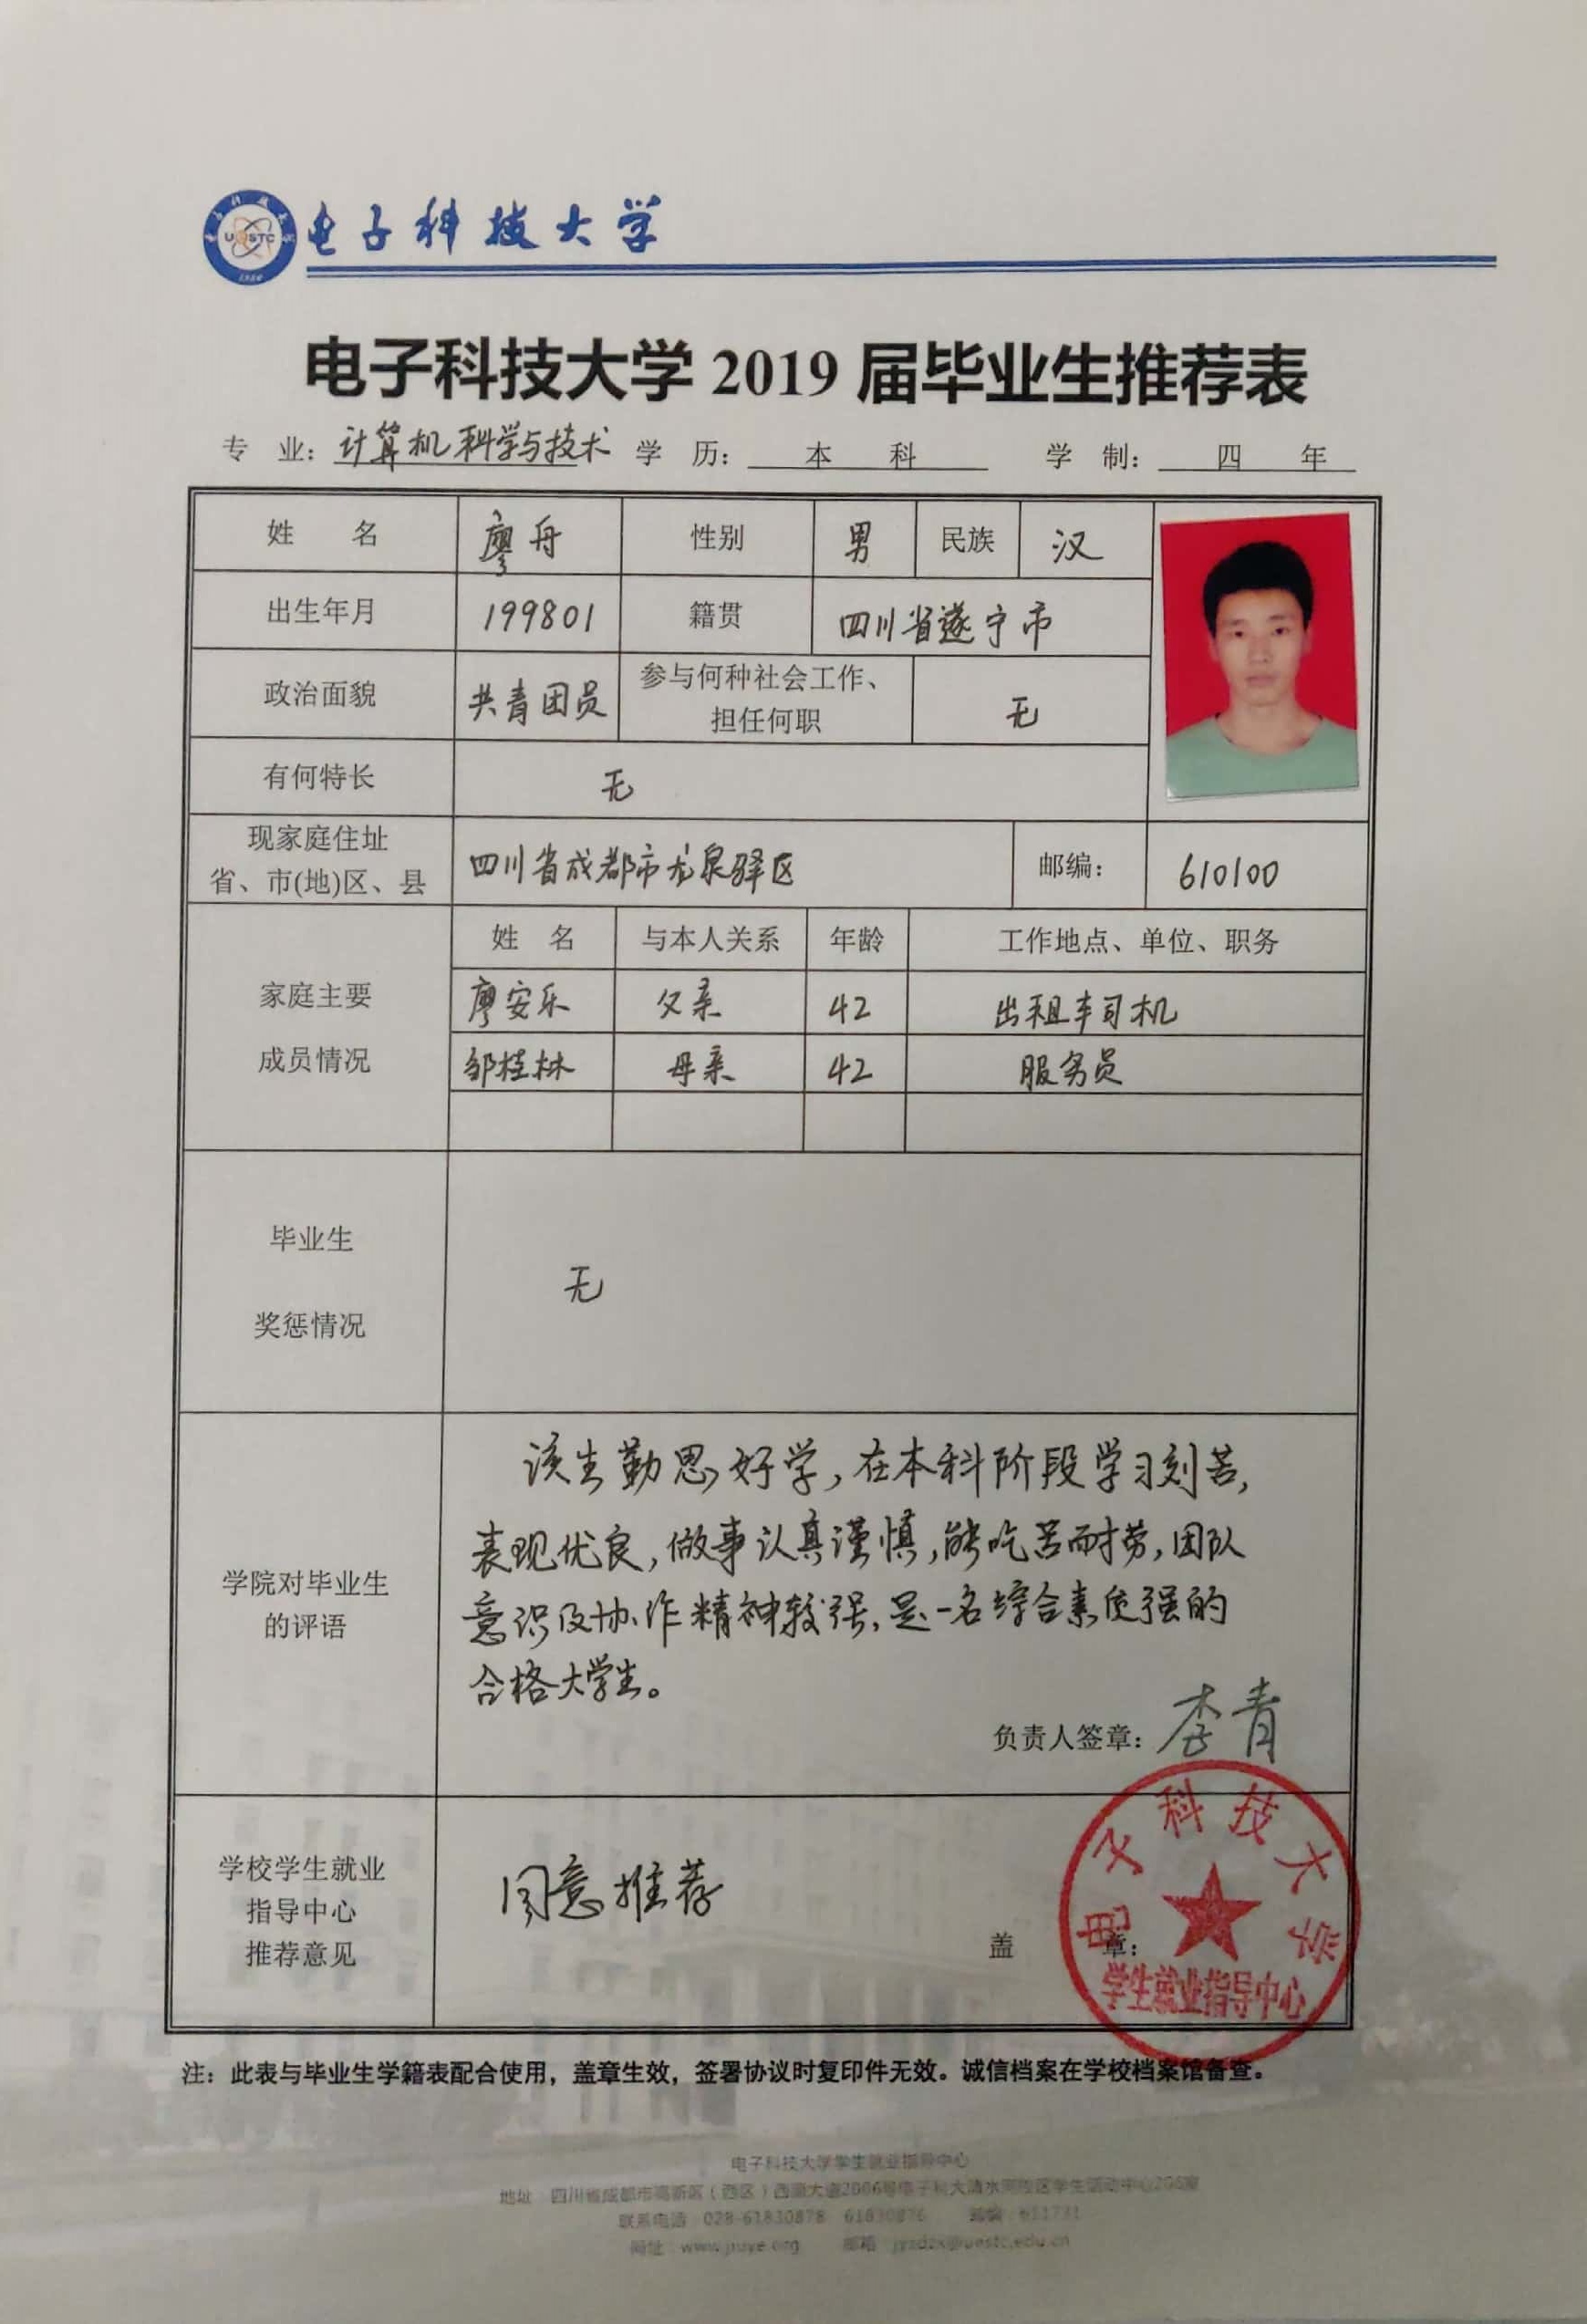 电子科技大学
电子科技大学 2019 届毕业生推荐表
专 业: 计算机科学与技术 学 历: 本 科 学 制: 四 年
姓 名 廖舟 性别 男 民族 汉
出生年月 199801 籍贯 四川省遂宁市
政治面貌 共青团员 参与何种社会工作、
担任何职 无
有何特长 无
现家庭住址
省、市(地)区、县 四川省成都市龙泉驿区 邮编: 610100
家庭主要
成员情况
姓 名 与本人关系 年龄 工作地点、单位、职务
廖安乐 父亲 42 出租车司机
邹桂林 母亲 42 服务员
毕业生
奖惩情况
无
学院对毕业生
的评语
该生勤思好学,在本科阶段学习刻苦,
表现优良,做事认真谨慎,能吃苦而耐劳,团队
意识及协作精神较强,是一名综合素质强的
合格大学生。
负责人签章: 李青
学校学生就业
指导中心
推荐意见
同意推荐
盖 章:
电子科技大学
学生就业指导中心
注: 此表与毕业生学籍表配合使用, 盖章生效, 签署协议时复印件无效。诚信档案在学校档案馆备查。
电子科技大学学生就业指导中心
地址 四川省成都市高新区(西区)西源大道2006号电子科大清水河校区学生活动中心206室
联系电话 028-61830878 61830876 邮编 611731
网址 www.jiuye.org 邮箱